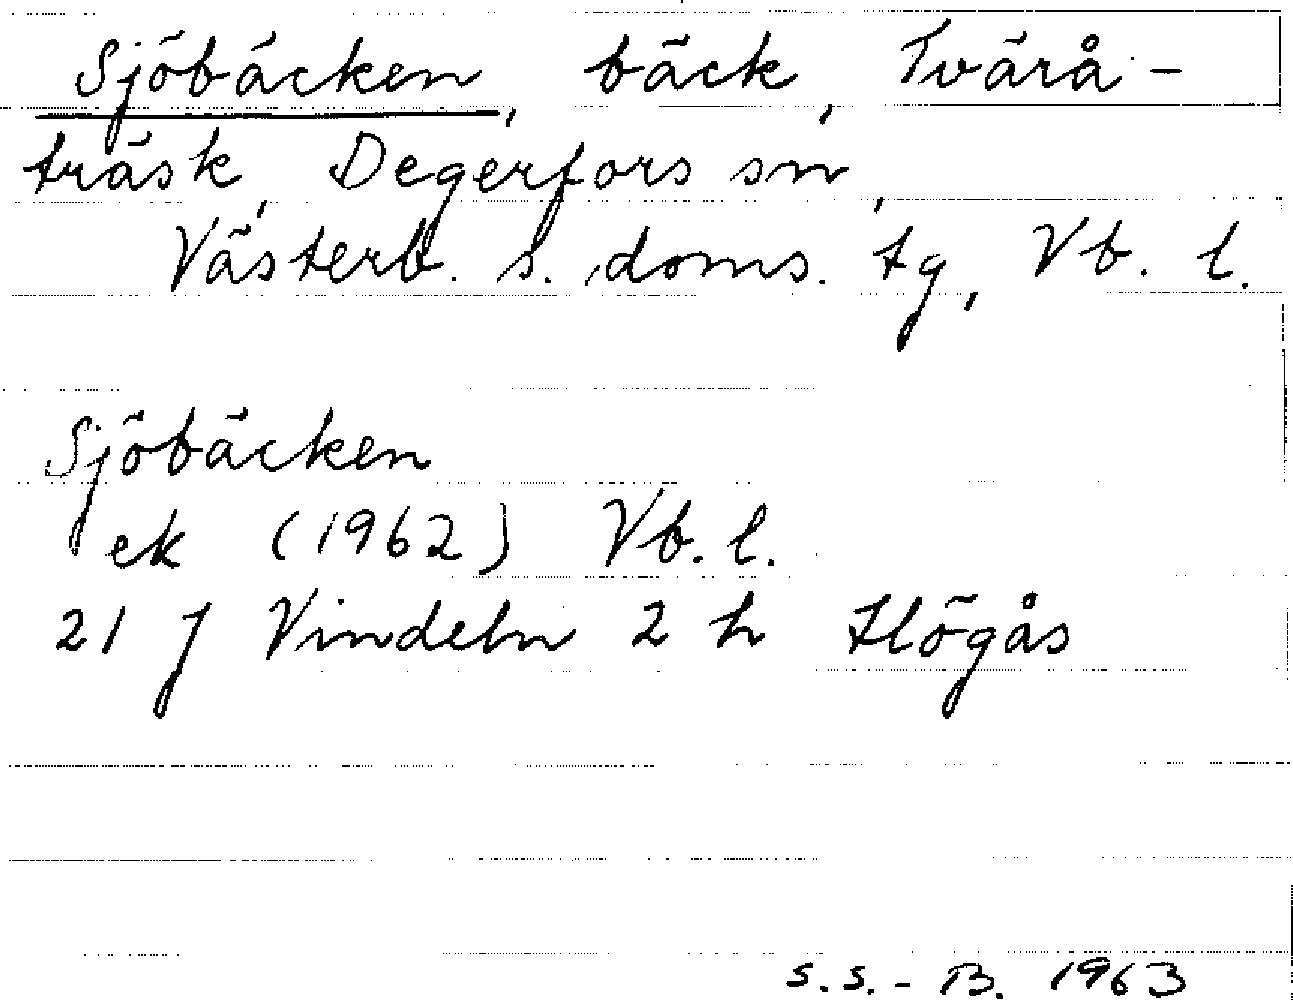 Sjöbäcken, bäck, Tvärå-
träsk, Degerfors sn,
Västerb. s. doms. tg, Vb. l.
Sjöbäcken
ek (1962) Vb. l.
21 J Vindeln 2 h Högås
S.S.-B. 1963